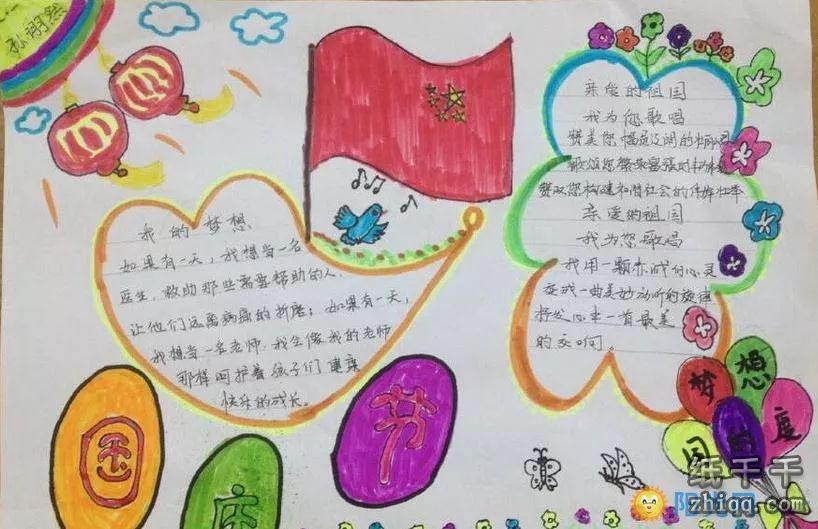 孙翊然
我的梦想
如果有一天，我想当一名
医生，救助那些需要帮助的人，
让他们远离病痛的折磨；如果有一天，
我想当一名老师，我会像我的老师
那样呵护着孩子们健康
快乐的成长。
亲爱的祖国
我为您歌唱
赞美您幅员辽阔的
歌颂您繁荣富强的
赞叹您构建和谐社会的伟雄壮举
亲爱的祖国
我为您歌唱
我用一颗赤诚的心灵
变成一曲美妙动听的旋律
抒发心中一首最美
的交响。
国
庆
节
梦想
国的度
纸千千
zhiqq.com